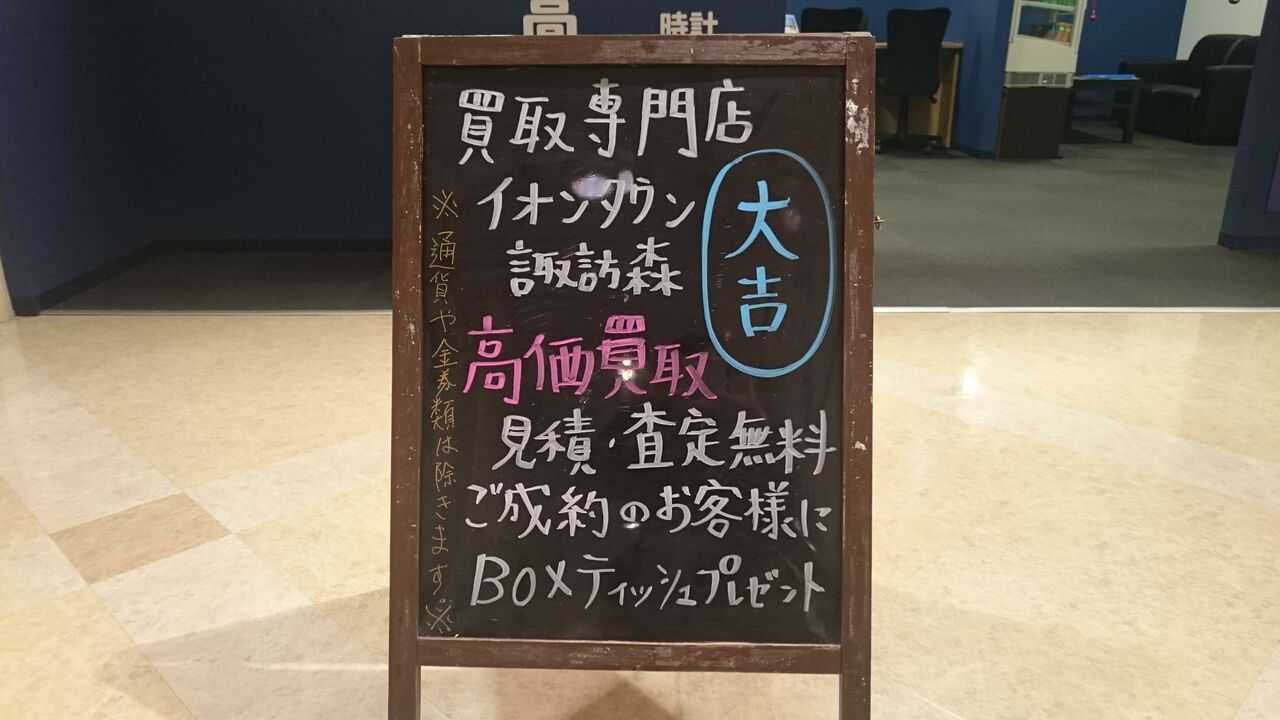 時計
買取専門店
イオンタウン
諏訪森
大吉
高価買取
見積・査定無料
ご成約のお客様に
BOXティッシュプレゼント
※通貨や金券類は除きます。※